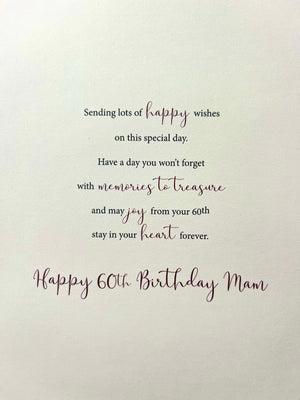 Sending lots of happy wishes
on this special day.
Have a day you won't forget
with memories to treasure
and may joy from your 60th
stay in your heart forever.
Happy 60th Birthday Mam